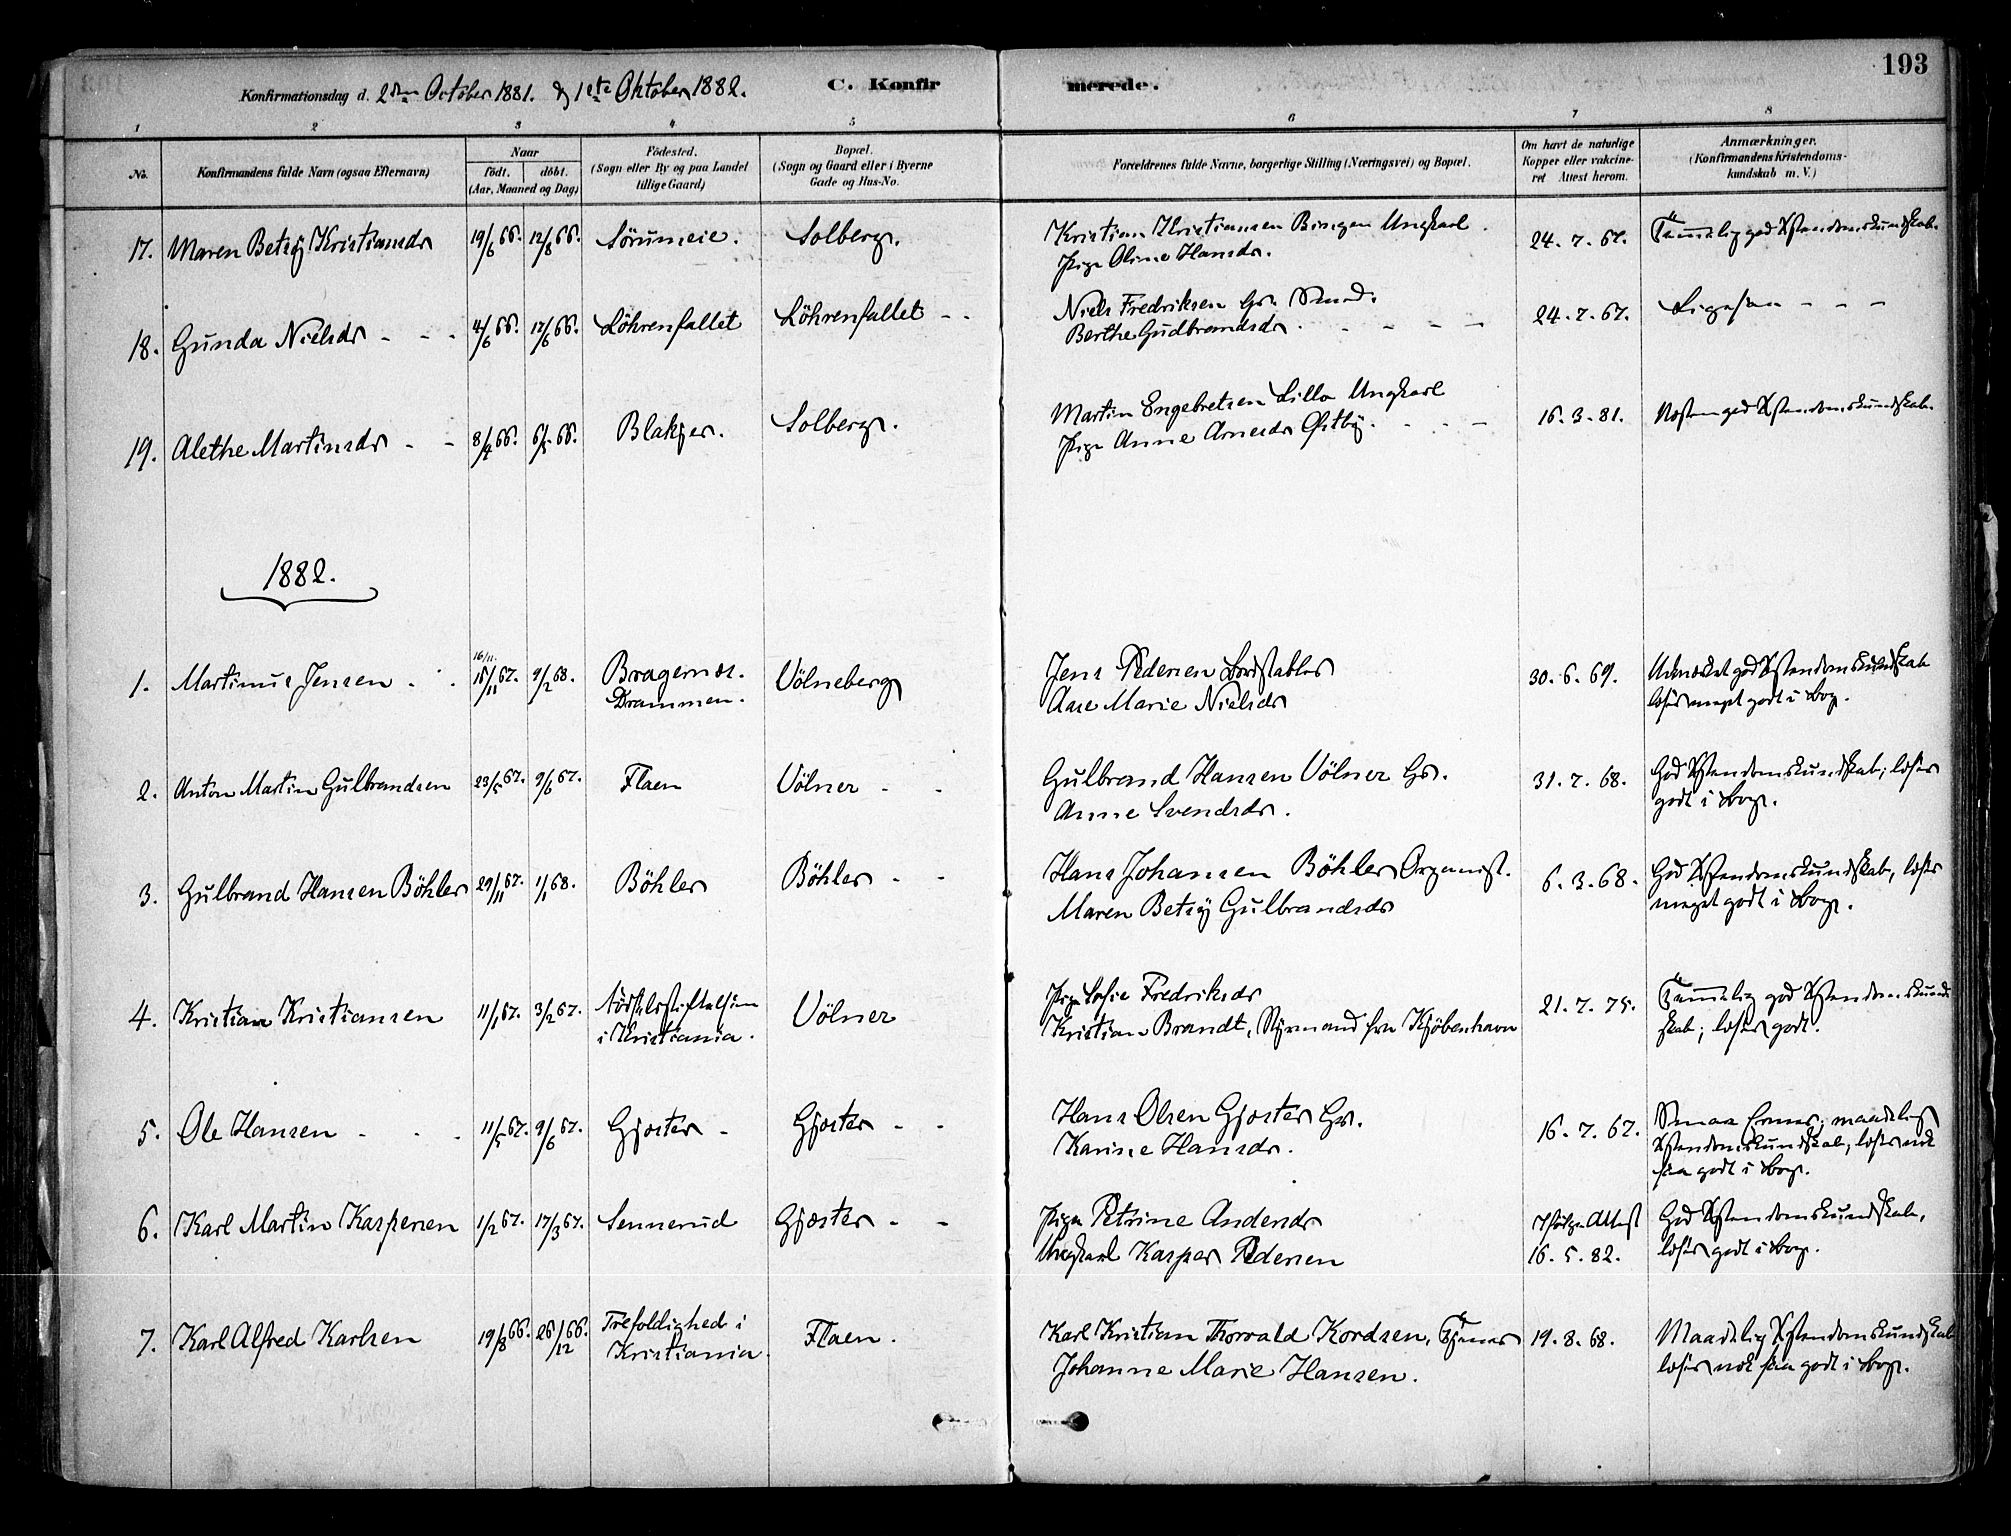 193
Konfirmationsdag d. 2den October 1881. & 1ste Oktober 1882. C. Konfirmerede.
1 2 3 4 5 6 7 8
No. Konfirmandens fulde Navn (ogsaa Efternavn) Naar födt. döbt. (Aar, Maaned og Dag) Födested. (Sogn eller By og paa Landet tillige Gaard) Bopæl. (Sogn og Gaard eller i Byerne Gade og Hus-No. Forældrenes fulde Navne, borgerlige Stilling (Næringsvei) og Bopæl. Om havt de naturlige Kopper eller vakcineret Attest herom. Anmærkninger. (Konfirmandens Kristendomskundskab m. V.)
17. Maren Betsy Kristiansdr 19/6 66. 12/8 66. Sörumeie. Solberg. Kristian Kristiansen Bingen Ungkarl.
Pige Oline Hansdr. 24. 7. 67. Temmelig god Xstendomskundskab.
18. Gunda Nielsdr - - - 4/6 66. 17/6 66. Löhrenfallet Löhrenfallet - - Niels Fredriksen Gr. Smed.
Berthe Gudbrandsdr. - - - - 24. 7. 67. Ligesaa - - -
19. Alethe Martinsdr - - 8/4 66. 6/5 66. Blakjer. Solberg. Martin Engebretsen Lille Ungkarl
Pige Anne Arnesdr Østby. - - - 16. 3. 81. Næsten god Xstendomskundskab.
1882.
1. Martinus Jensen - - 16/11. 15/11 67. 9/2 68. Bragernæs.
Drammen. Völneberg Jens Pedersen
Ane Marie Nielsdr 30. 6. 69. Udmærket god Xstendomskundskab
læser meget godt i Bog.
2. Anton Martin Gulbrandsen 23/5 67. 9/6 67. Flaen Völner - - Gulbrand Hansen Völner Gr.
Anne Svendsdr. 31. 7. 68. God Xstendomskundskab; læser
godt i Bog.
3. Gulbrand Hansen Böhler 29/11 67. 1/1 68. Böhler Böhler - - Hans Johansen Böhler Organist.
Maren Betsy Gulbrandsdr 6. 3. 68. God Xstendomskundskab, læser
meget godt i Bog.
4. Kristian Kristiansen 11/1 67. 3/2 67. Födselsstiftelsen
i Kristiania. Völner Pige Sofie Fredriksdr
Kristian Brandt, Styrmand fra Kjöbenhavn 21. 7. 75. Temmelig god Xstendomskund-
skab; læser godt.
5. Ole Hansen - - - 11/5 67. 9/6 67. Gjøster - Gjøster - - Hans Olsen Gjøster Gr.
Karine Hansdr. 16. 7. 67. Smaa Evner; maadelig
Xstendomskundskab, læser nok
saa godt i Bog.
6. Karl Martin Kaspersen 1/2 67. 17/3 67. Sennerud Gjøster - - Pige Petrine Andersdr
Ungkarl Kasper Pedersen Ifölge Attest
16. 5. 82. God Xstendomskundskab,
læser godt i Bog.
7. Karl Alfred Karlsen 19/8 66. 26/12 66. Trefoldighed i
Kristiania. Flaen. Karl Kristian Thorvald Kordsen, Tjener
Johanne Marie Hansen. 19. 8. 68. Maadelig Xstendomskundskab
læser nok saa godt i Bog.